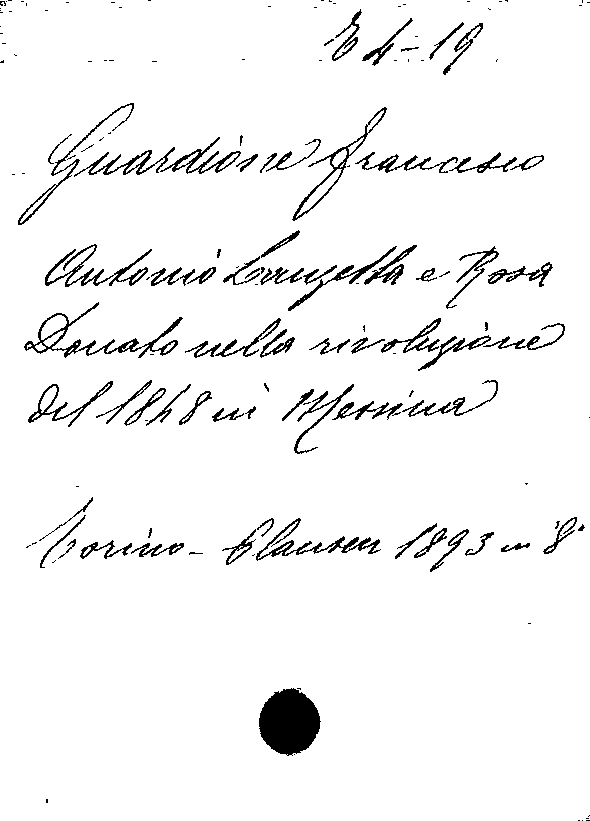 E 4-19
Guardione Francesco
Antonio Lanzetta e Rosa
Donato nella rivoluzione
del 1848 in Messina
Torino - Clausen 1893 in 8°